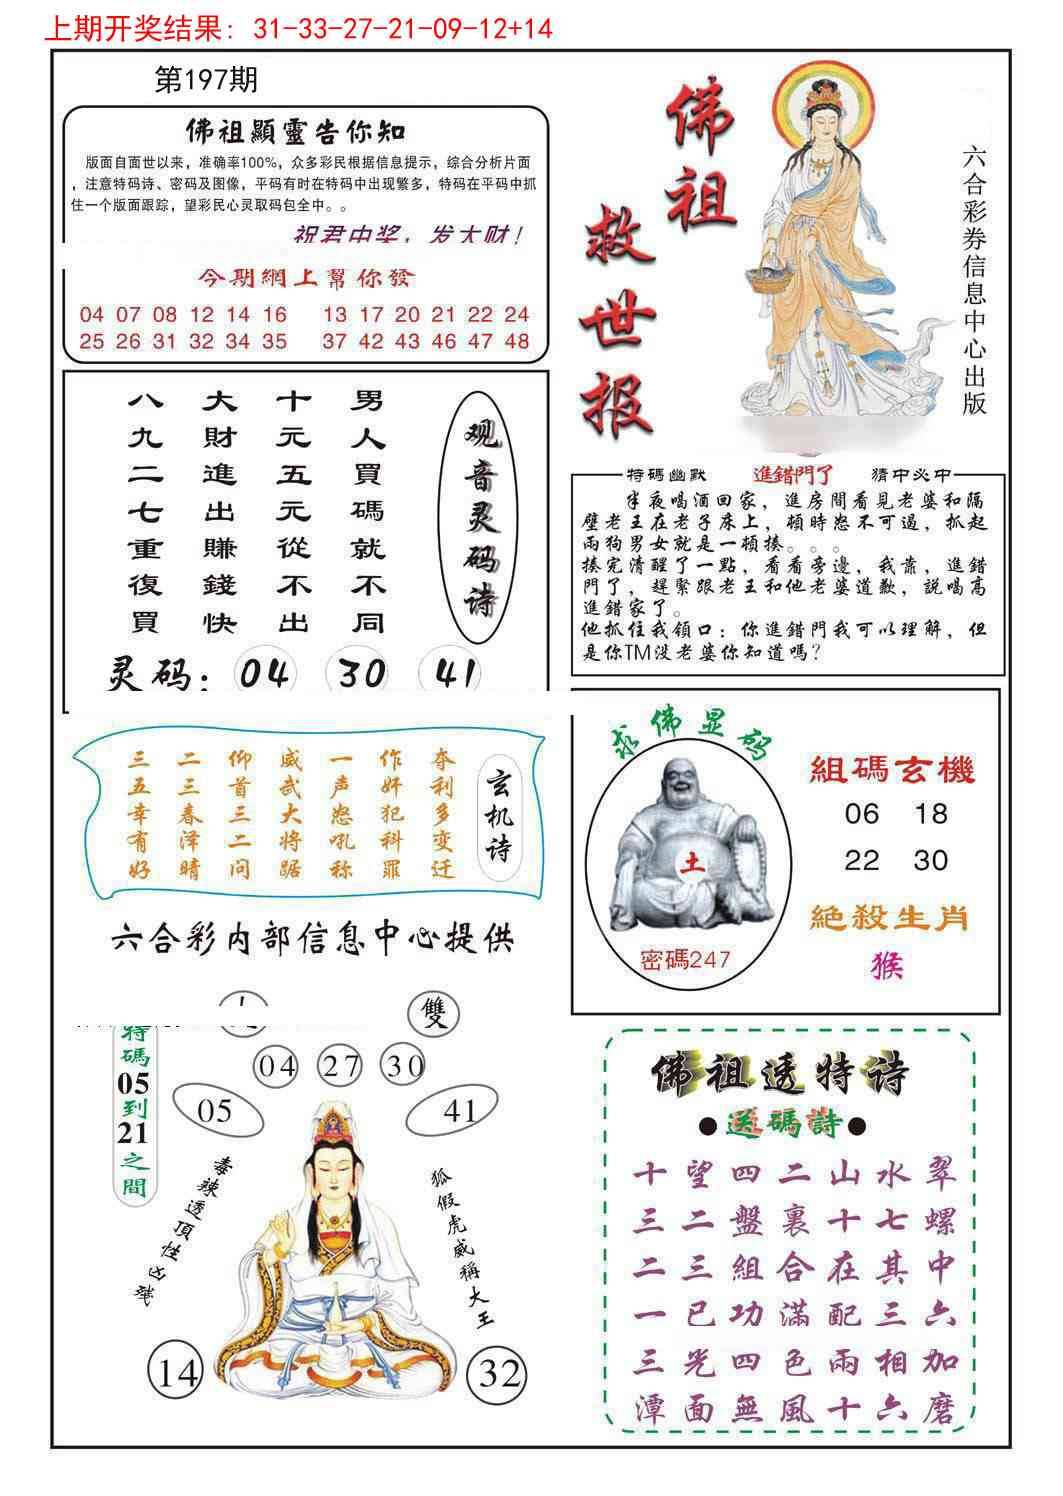 上期开奖结果: 31-33-27-21-09-12+14
第197期
佛祖顯靈告你知
版面自面世以来，准确率100%，众多彩民根据信息提示，综合分析片面
，注意特码诗、密码及图像，平码有时在特码中出现繁多，特码在平码中抓
住一个版面跟踪，望彩民心灵取码包全中。。
祝君中奖，发大财！
今期網上幫你發
04 07 08 12 14 16 13 17 20 21 22 24
25 26 31 32 34 35 37 42 43 46 47 48
佛祖
救世报
六合彩券信息中心出版
观音灵码诗
男人買碼就不同
十元五元從不出
大財進出賺錢快
八九二七重復買
灵码：04 30 41
特碼幽默 進錯門了 猜中必中
半夜喝酒回家，進房間看見老婆和隔
壁老王在老子床上，頓時怒不可遏，抓起
兩狗男女就是一頓揍。。。
揍完清醒了一點，看看旁邊，我靠，進錯
門了，趕緊跟老王和他老婆道歉，説喝高
進錯家了。
他抓住我領口：你進錯門我可以理解，但
是你TM没老婆你知道嗎？
玄机诗
夺利多变迁
作奸犯科罪
一声怒吼称
威武大将踞
仰首三二问
二三春泽晴
三五幸有好
求佛显码
土
密碼247
組碼玄機
06 18
22 30
絕殺生肖
猴
六合彩内部信息中心提供
雙
特碼05到21之間
04 27 30
05 41
毒辣透頂性凶残
狐假虎威稱大王
14 32
佛祖透特诗
●送碼詩●
十望四二山水翠
三二盤裏十七螺
二三組合在其中
一已功滿配三六
三光四色兩相加
潭面無風十六磨